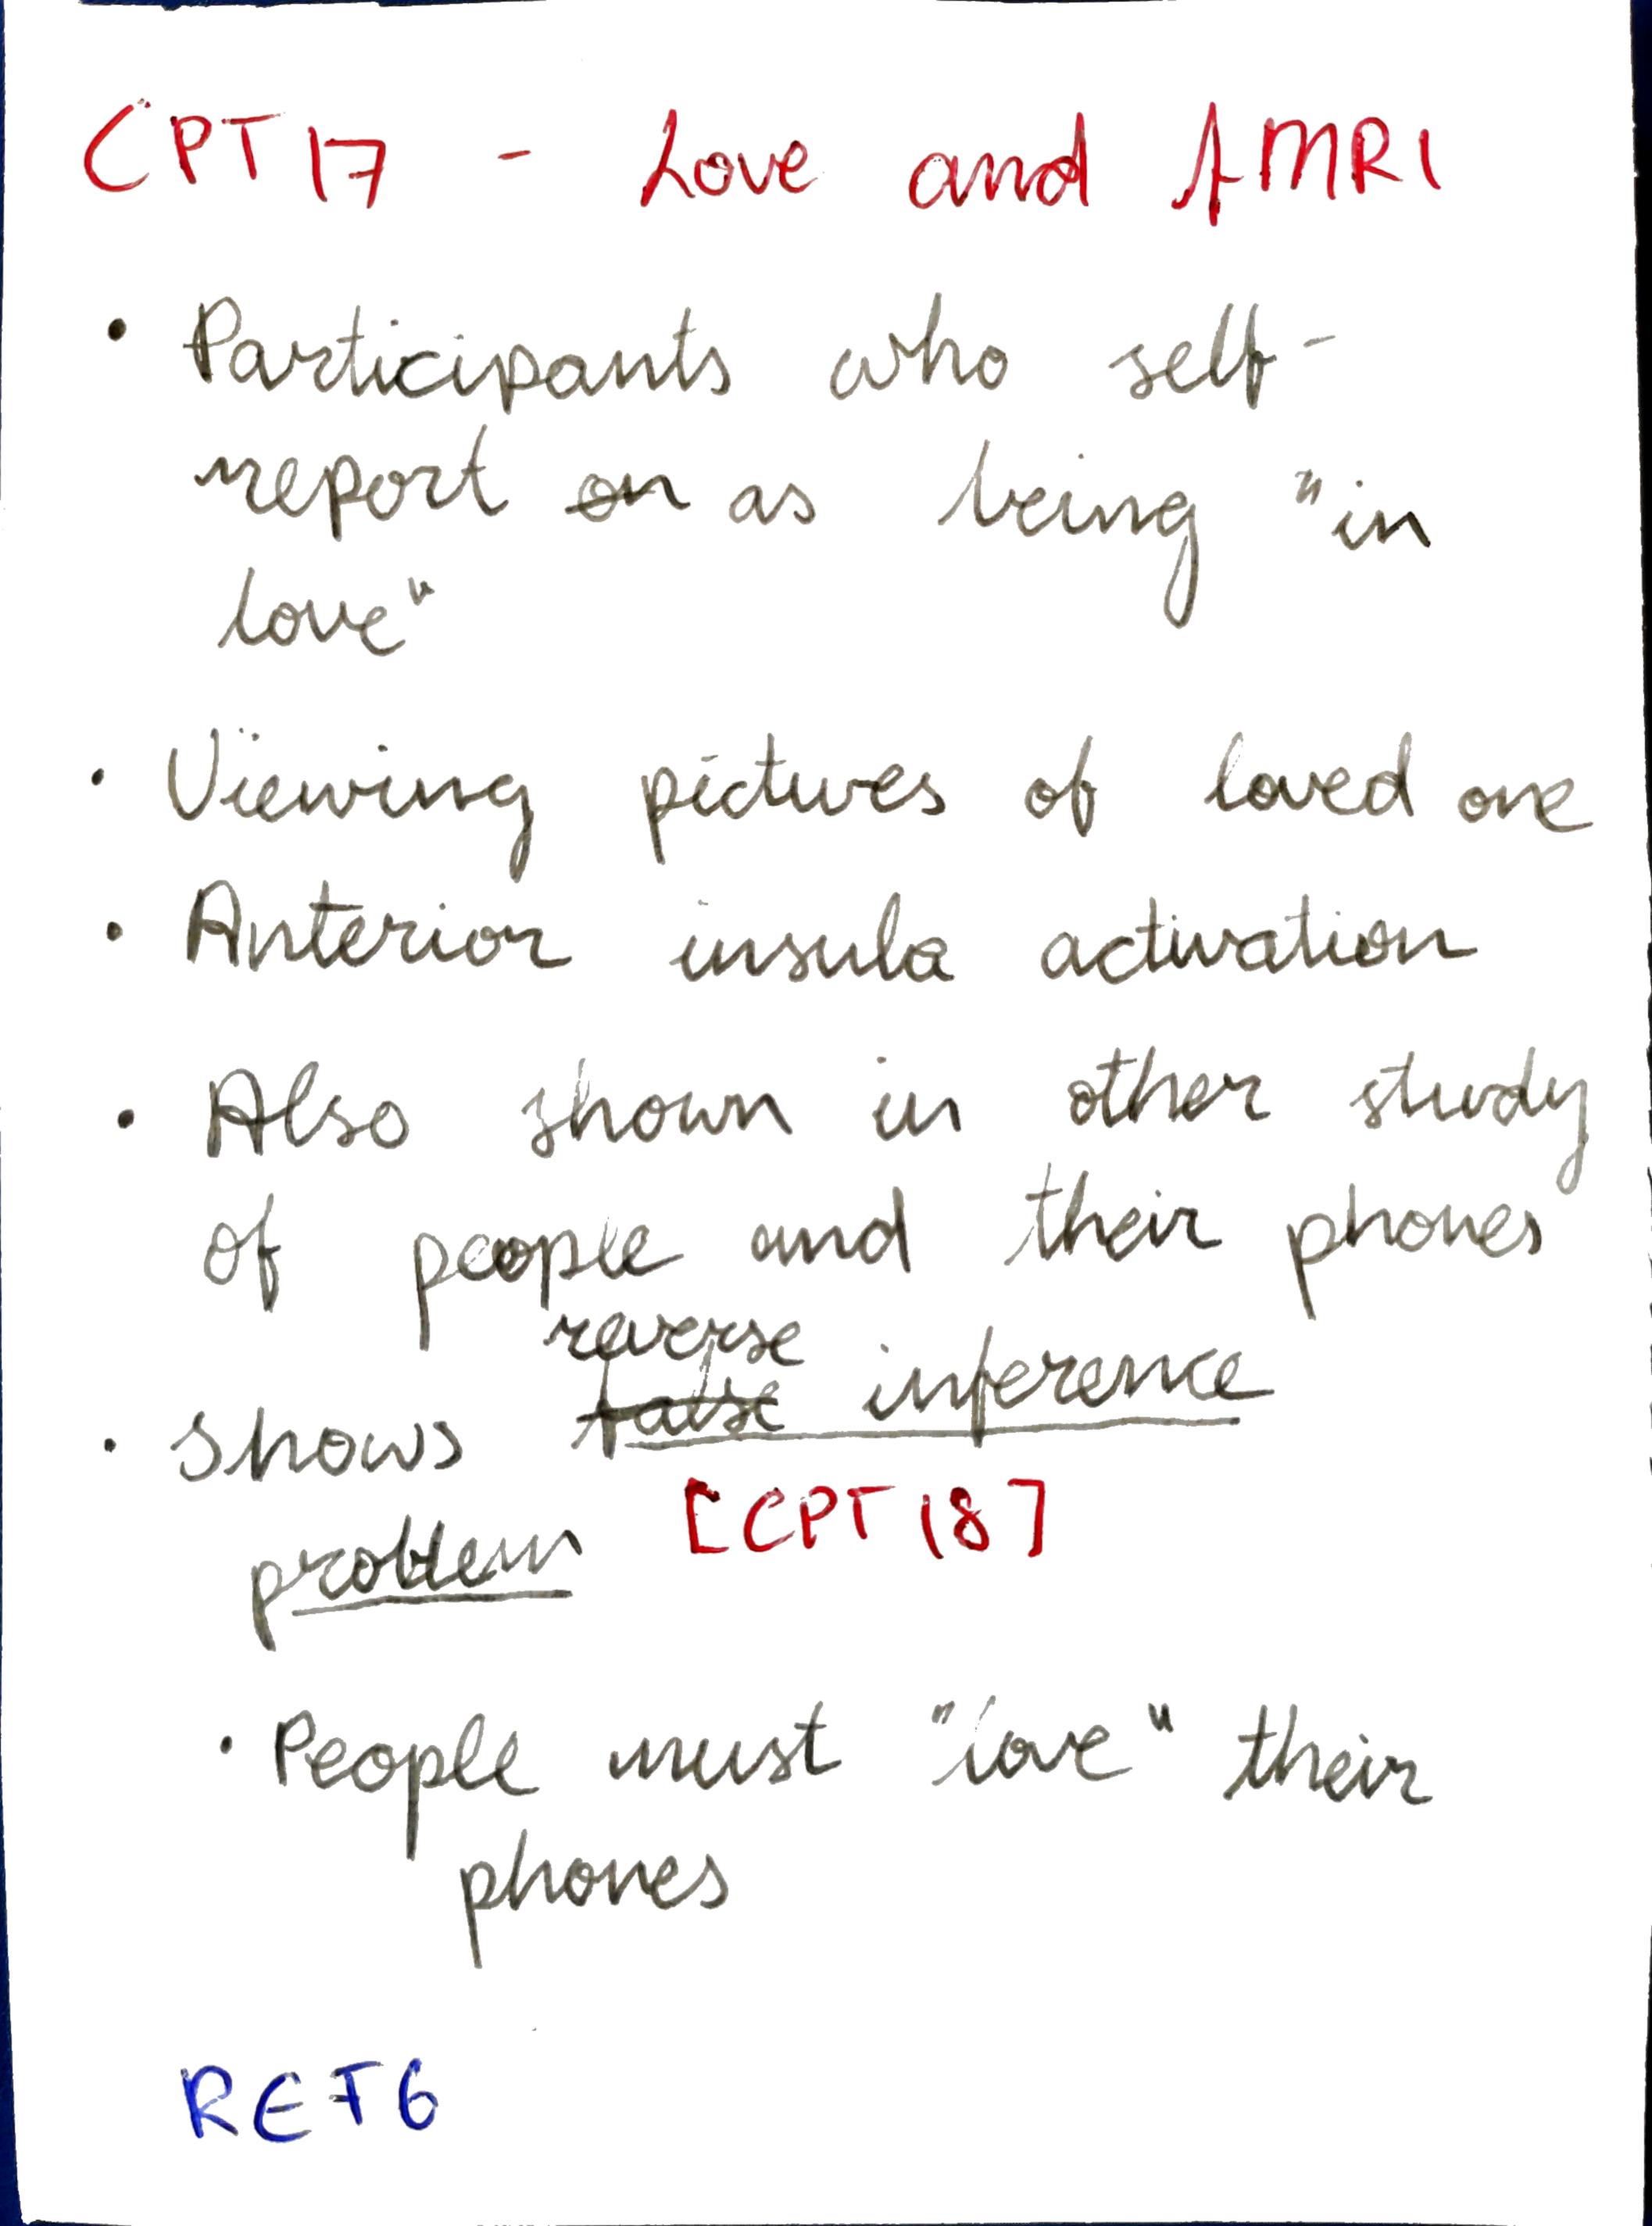 CPT17 - Love and fMRI
• Participants who self-
report ~~on~~ as being "in
love"
• Viewing pictures of loved one
• Anterior insula activation
• Also shown in other study
of people and their phones
reverse
• shows ~~false~~ inference
problem [CPT18]
• People must "love" their
phones
REF6